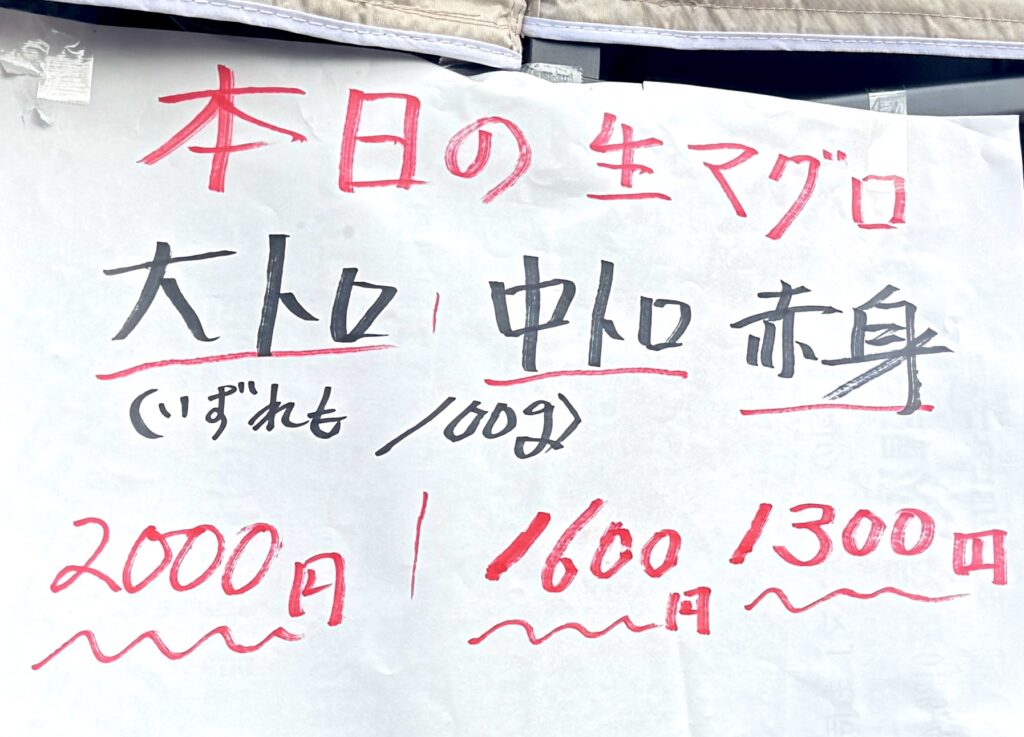 本日の生マグロ
大トロ 中トロ 赤身
(いずれも 100g)
2000円 1600円 1300円